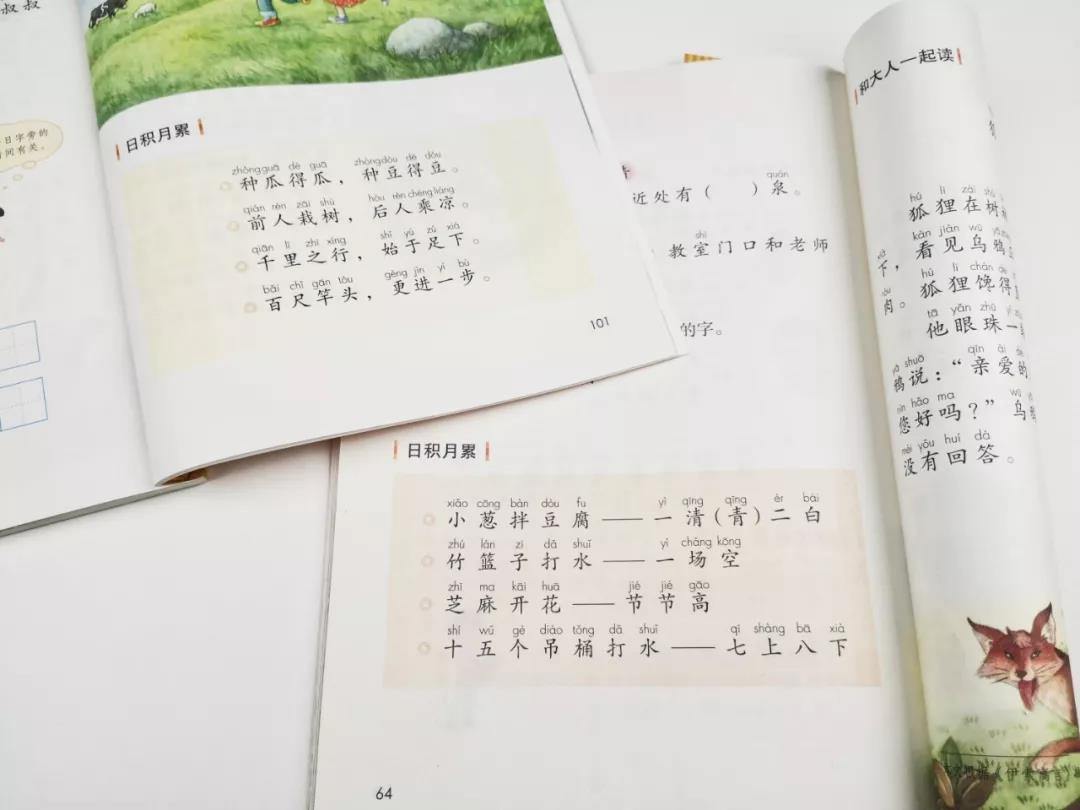 叔叔
日字旁的
间有关。
日积月累
zhòngguā dé guā zhòngdòu dé dòu
种瓜得瓜，种豆得豆。
qián rén zāi shù hòu rén chéng liáng
前人栽树，后人乘凉。
qiān lǐ zhī xíng shǐ yú zú xià
千里之行，始于足下。
bǎi chǐ gān tóu gèng jìn yí bù
百尺竿头，更进一步。
101
quán
近处有（ ）泉。
shì
教室门口和老师
的字。
日积月累
xiǎo cōng bàn dòu fu yì qīng qīng èr bái
小葱拌豆腐——一清（青）二白
zhú lán zi dǎ shuǐ yì chǎng kōng
竹篮子打水——一场空
zhī ma kāi huā jié jié gāo
芝麻开花——节节高
shí wǔ gè diào tǒng dǎ shuǐ qī shàng bā xià
十五个吊桶打水——七上八下
64
和大人一起读
hú li zài shù
狐狸在树
kàn jiàn wū yā
看见乌鸦
xià
下，
hú li chán de
肉。狐狸馋得
tā yǎn zhū
他眼珠一
yā shuō qīn ài de
鸦说：“亲爱的
nín hǎo ma wū
您好吗？”乌
méi yǒu huí dá
没有回答。